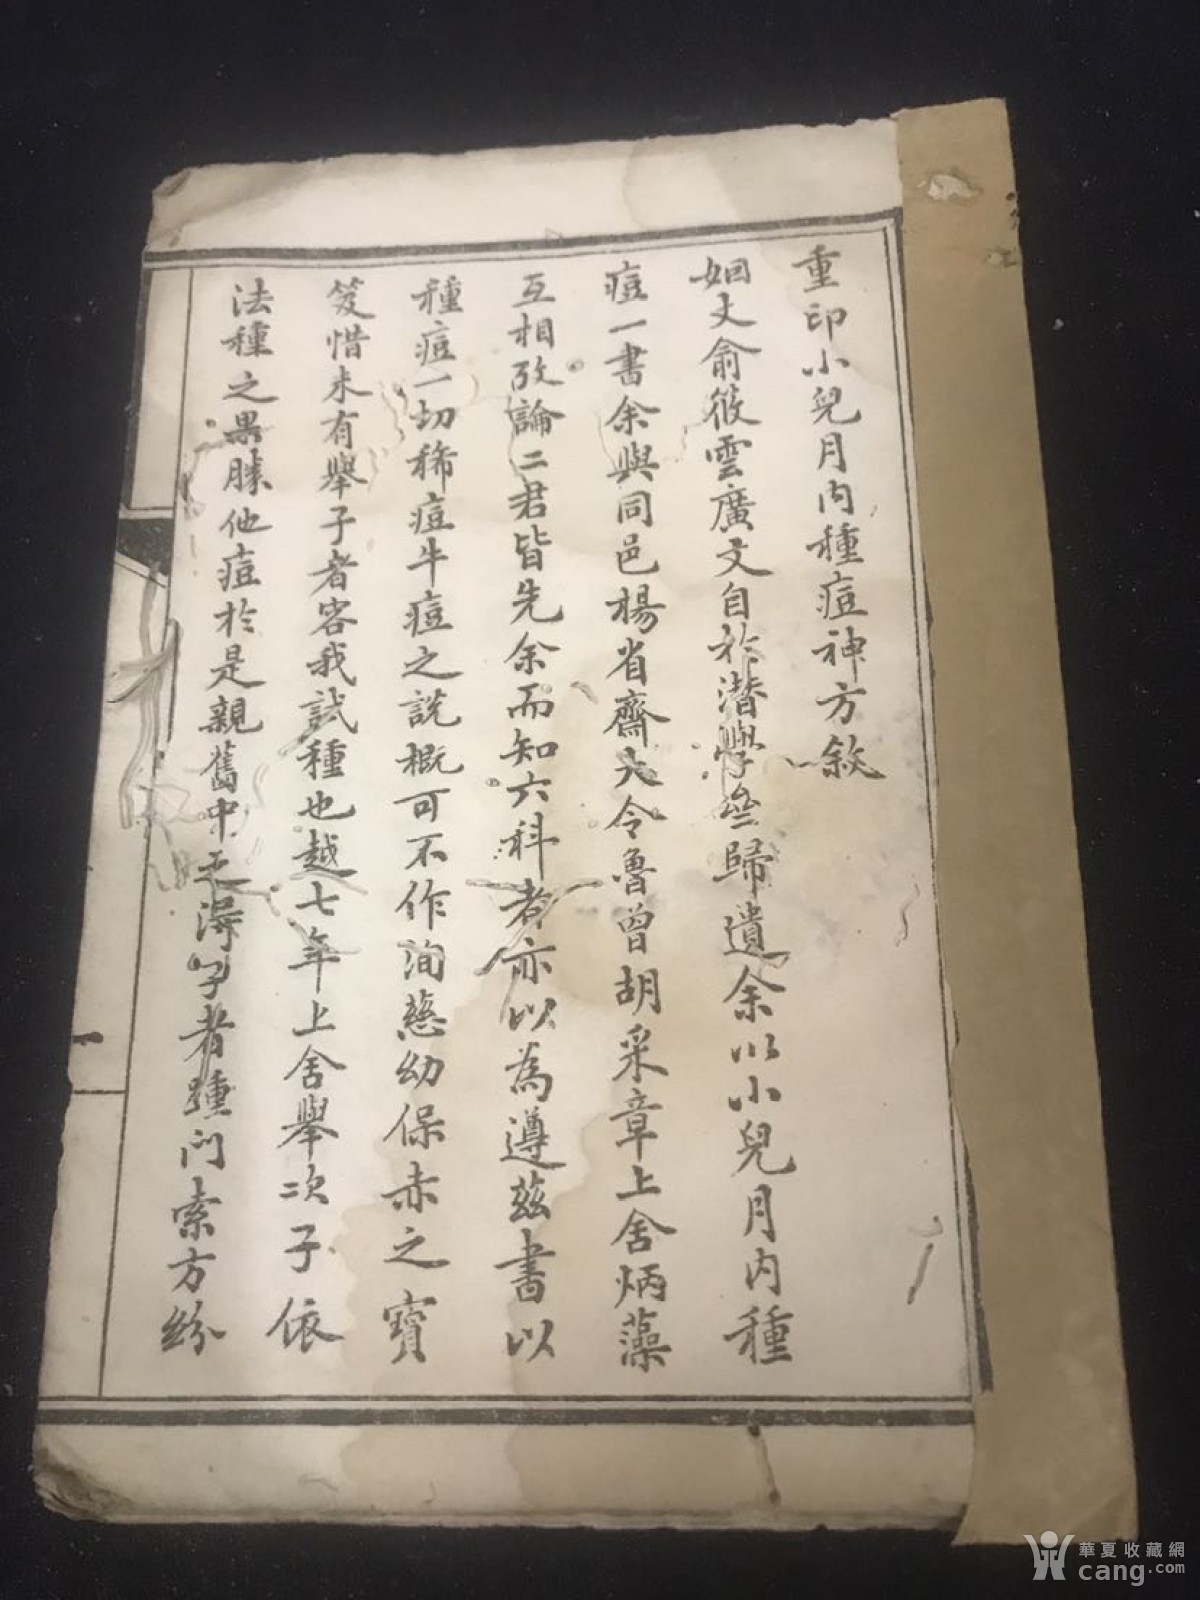 重印小兒月內種痘神方敘
姻丈俞筱雲廣文自於潛學
歸遺余以小兒月內種
痘一書余與同邑楊省齋大令魯曾胡采章上舍炳藻
互相攷論二君皆先余而知六科者亦以為遵茲書以
種痘一切稀痘牛痘之說概可不作洵慈幼保赤之寶
笈惜未有舉子者容我試種也越七年上舍舉次子依
法種之果勝他痘於是親舊中之得子者踵門索方紛
華夏收藏網
cang.com